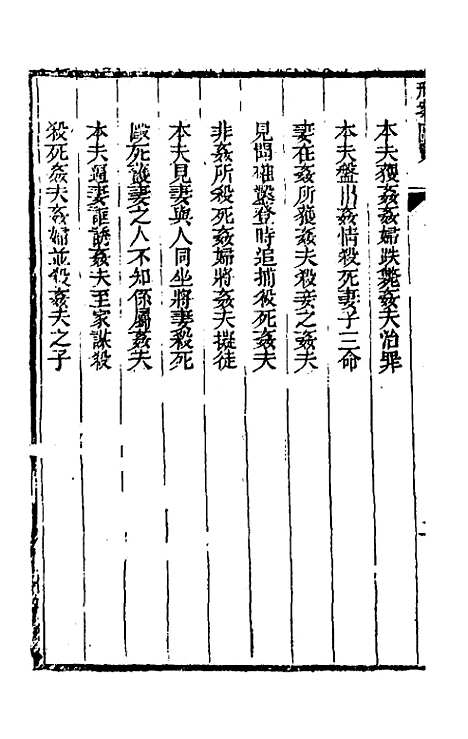 本夫獲姦姦婦跌斃姦夫治罪
本夫盤出姦情殺死妻子三命
妻在姦所獲姦夫殺妾之姦夫
見聞確鑿登時追捕殺死姦夫
非姦所殺死姦婦將姦夫擬徒
本夫見妻與人同坐將妻殺死
毆死護妻之人不知係屬姦夫
本夫逼妻誆誘姦夫至家謀殺
殺死姦夫姦婦並殺姦夫之子